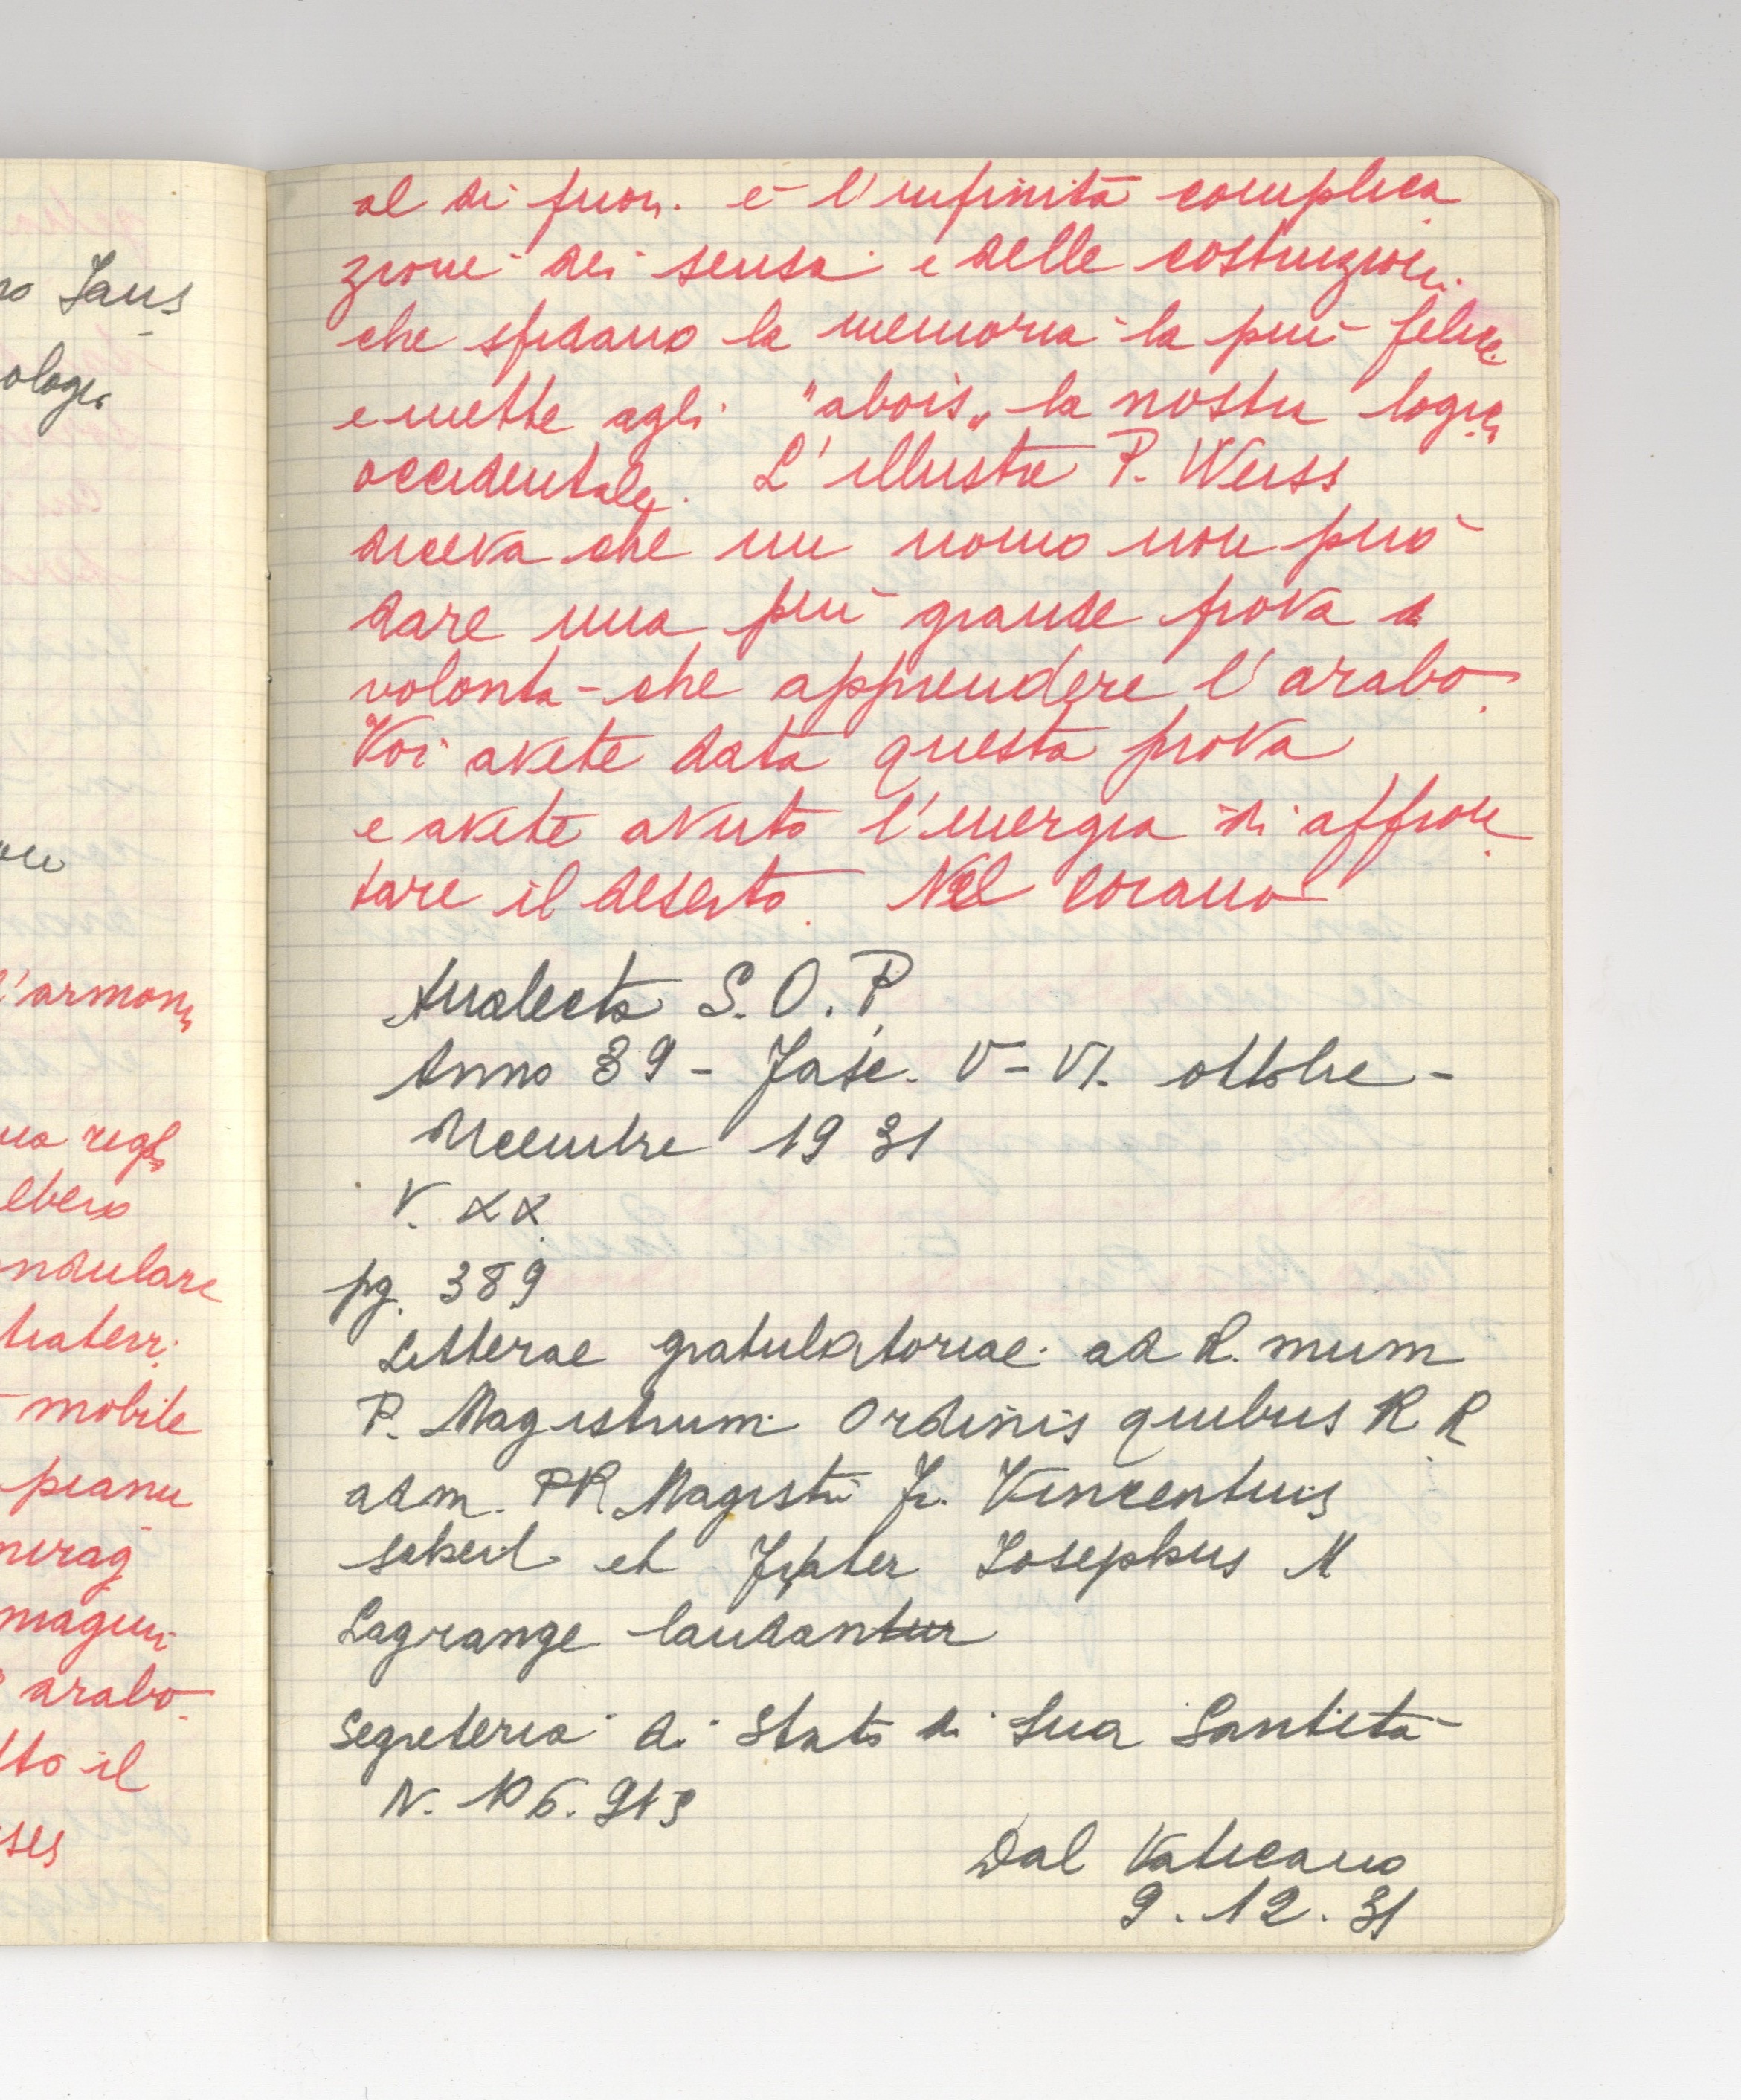 no Jaus
ologi
ou
l'armoni
ua regol
ebero
ondulare
traterr.
mobile
pianu
mirag
magini
arabo.
tto il
ses
al di fuori. è l'infinità complica
zione dei sensi e delle costruzioni.
che sfidano la memoria la più felice
e mette agli "abois„ la nostra logica
occidentale. L'illustre P. Weiss
diceva che un uomo non può
dare una più grande prova di
volontà che apprendere l'arabo.
Voi avete data questa prova
e avete avuto l'energia di affron
tare il deserto. Nel corano
Analecta S.O.P.
Anno 39 - Fasc. V-VI. ottobre -
Decembre 1931
V. XX
pg. 389
Litterae gratulatoriae ad R.mum
P. Magistrum Ordinis quibus R.R
adm. PP. Magistri Fr. Vincentius
et Frater Iosephus M
Lagrange laudantur
Segreteria di Stato di Sua Santità
N. 106.913
Dal Vaticano
9.12.31